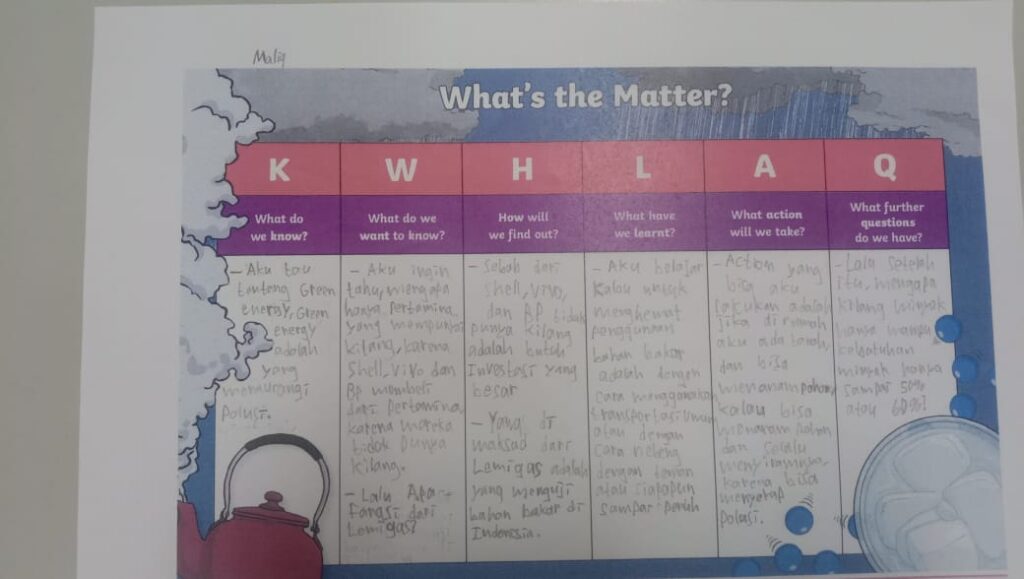 Maliq
What's the Matter?
K
W
H
L
A
Q
What do
we know?
What do we
want to know?
How will
we find out?
What have
we learnt?
What action
will we take?
What further
questions
do we have?
- Aku tau
tentang Green
energy, Green
energy
adalah
yang
mengurangi
Polusi.
- Aku ingin
tahu, mengapa
hanya Pertamina
yang mempunyai
kilang, karena
Shell, Vivo dan
Bp membeli
dari Pertamina,
karena mereka
tidak Punya
kilang.
- Lalu Apa
Fungsi dari
Lemigas?
- Sebab dari
Shell, Vivo,
dan BP tidak
punya kilang
adalah butuh
Investasi yang
besar
- Yang di
maksud dari
Lemigas adalah
yang menguji
bahan bakar di
Indonesia.
- Aku belajar
kalau untuk
menghemat
penggunaan
bahan bakar
adalah dengan
cara menggunakan
transportasi umum
atau dengan
cara nebeng
dengan teman
atau siapapun
sampai penuh
- Action yang
bisa aku
lakukan adalah
jika di rumah
aku ada tanah,
dan bisa
menanam pohon,
kalau bisa
menanam pohon
dan selalu
menyiraminya,
karena bisa
menyerap
Polusi.
- Lalu setelah
itu, mengapa
kilang minyak
hanya mampu
kebutuhan
minyak hanya
sampai 50%
atau 60%?